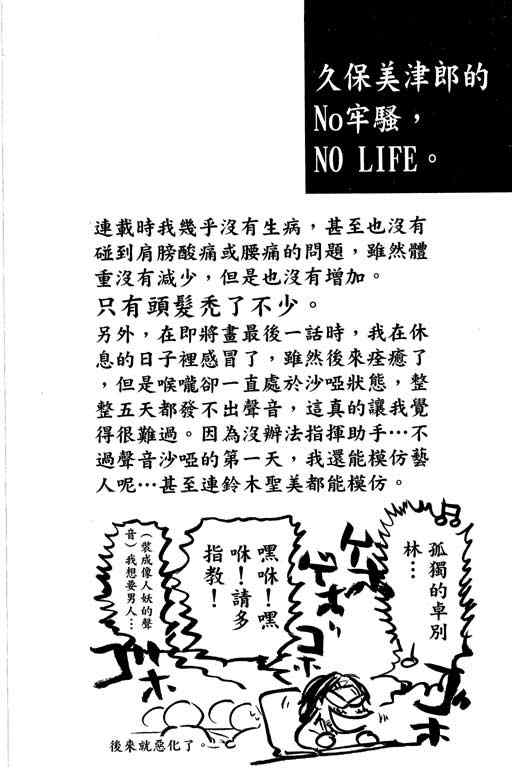 久保美津郎的
No牢騷，
NO LIFE。
連載時我幾乎沒有生病，甚至也沒有
碰到肩膀酸痛或腰痛的問題，雖然體
重沒有減少，但是也沒有增加。
只有頭髮禿了不少。
另外，在即將畫最後一話時，我在休
息的日子裡感冒了，雖然後來痊癒了
，但是喉嚨卻一直處於沙啞狀態，整
整五天都發不出聲音，這真的讓我覺
得很難過。因為沒辦法指揮助手…不
過聲音沙啞的第一天，我還能模仿藝
人呢…甚至連鈴木聖美都能模仿。
孤獨的卓別
林…
嘿咻！嘿
咻！請多
指教！
（裝成像人妖的聲
音）我想要男人…
後來就惡化了。